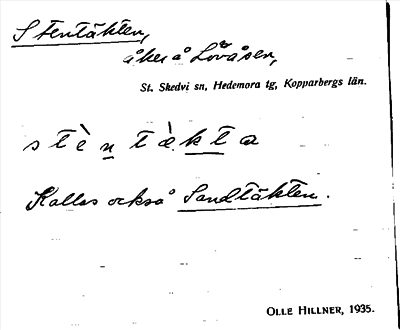 Stentäkten,
åker å Lövåsen,
St. Skedvi sn, Hedemora tg, Kopparbergs län.
s t è n t à k t a
Kallas också Sandtäkten.
OLLE HILLNER, 1935.